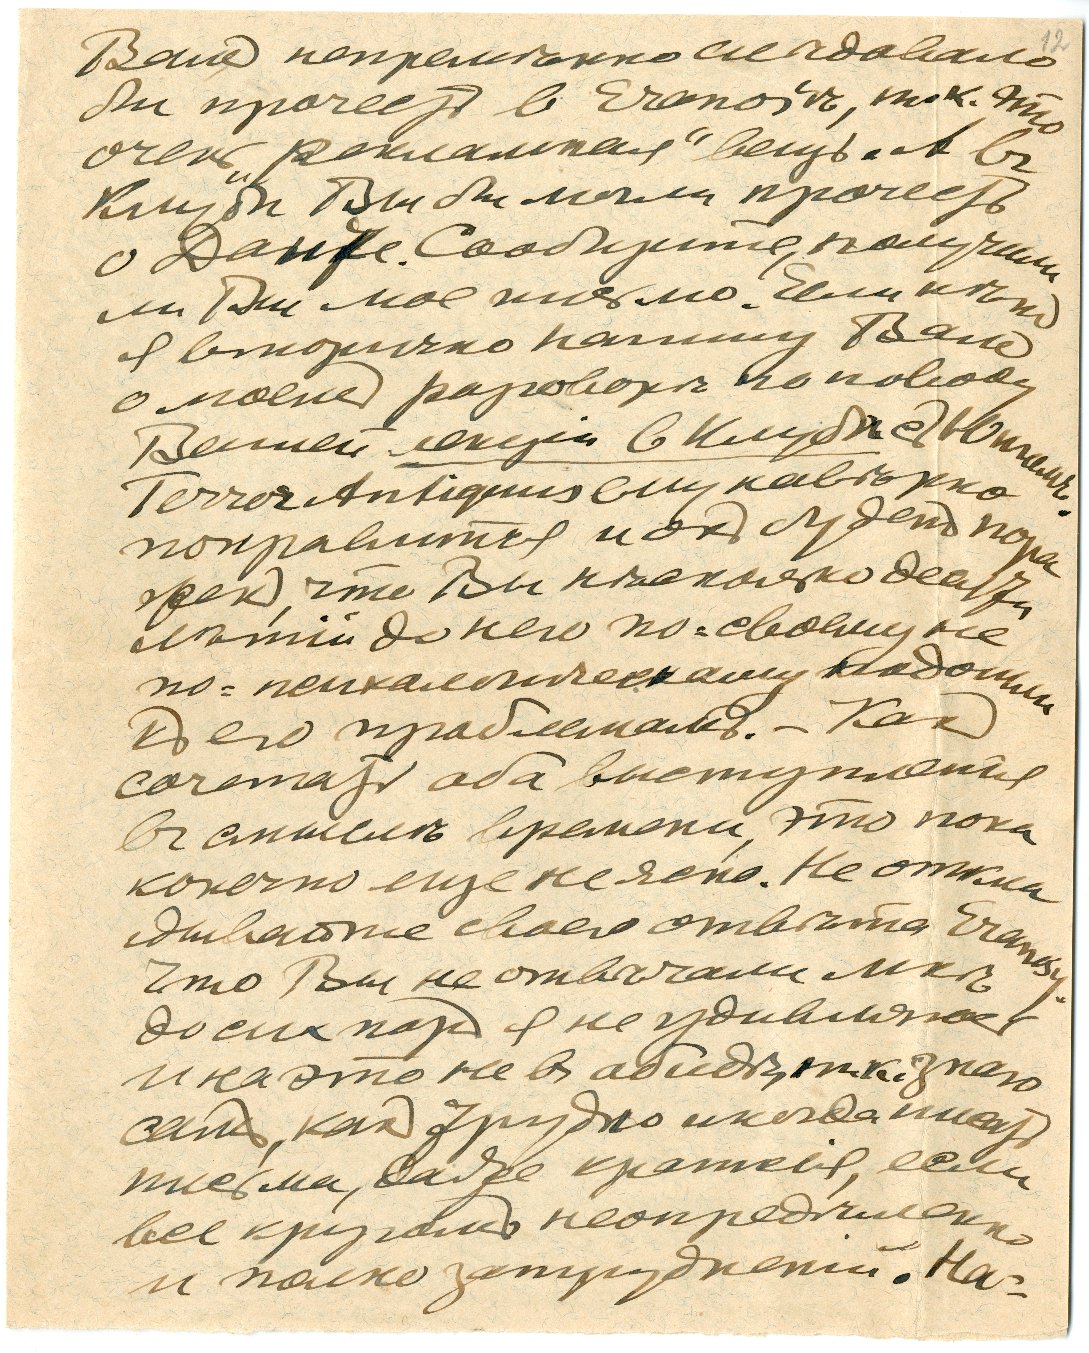 12
Вамъ непремѣнно слѣдовало
бы прочесть в Eranos'ѣ, т.к. это
очень „рекламная" вещь. А въ
Клубѣ Вы бы могли прочесть
о Данте. Сообщите, получили
ли Вы мое письмо. Если нѣтъ
я вторично напишу Вамъ
о моемъ разговорѣ по поводу
Вашей лекціи в Клубѣ съ Юнгомъ.
Terror Antiquus ему навѣрно
понравится и онъ будетъ пора
женъ, что Вы нѣсколько десяти
лѣтій до него по=своему не
по=психологическому подошли
къ его проблемамъ. – Какъ
сочетать оба выступленія
въ смыслѣ времени, это пока
конечно еще не ясно. Не откла
дывайте своего отвѣта Eranosу.
Что Вы не отвѣчали мнѣ
до сих поръ я не удивляюсь
и на это не въ обидѣ, т.к. знаю
самъ, какъ трудно иногда писать
письма, даже краткія, если
все кругомъ неопредѣленно
и полно затрудненій. На=